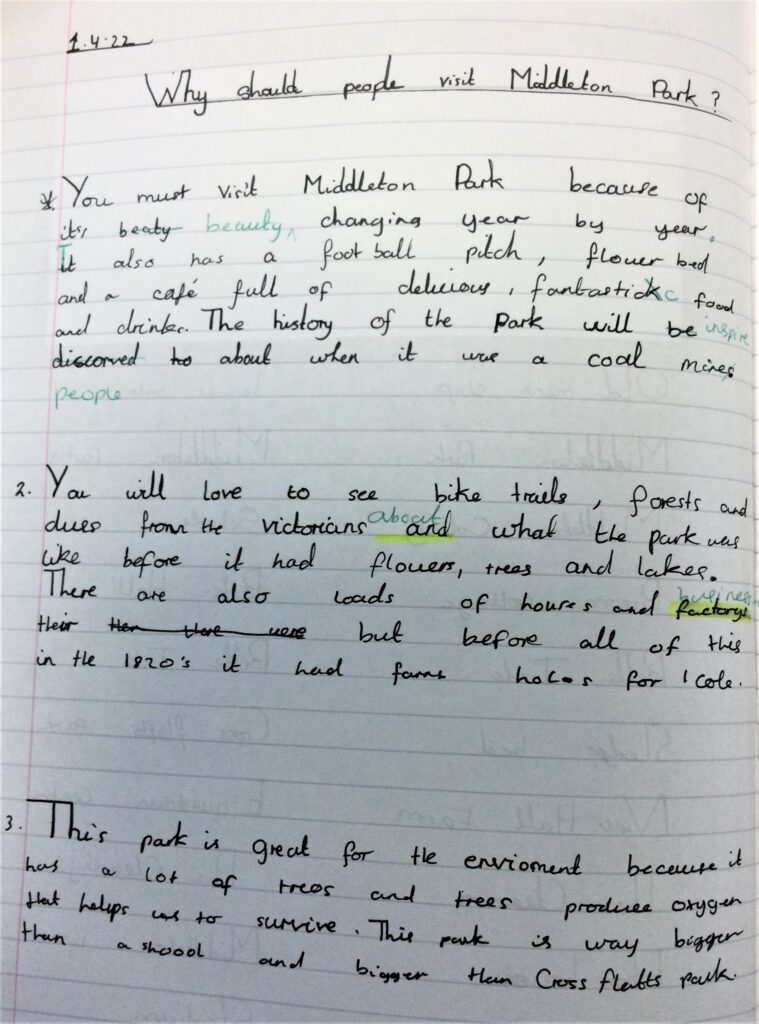 1.4.22
Why should people visit Middleton Park?
* You must visit Middleton Park because of
it's beaty beauty, changing year by year.
It also has a foot ball pitch, flower bed
and a café full of delicious, fantastick c food
and drinks. The history of the Park will be inspire
discorved to about when it was a coal mines.
people
2. You will love to see bike trails, forests and
clues from the victorians about and what the park was
like before it had flowers, trees and lakes.
There are also loads of houses and business factorys
their ther there were but before all of this
in the 1820's it had farms holes for cole.
3. This park is great for the enviroment because it
has a lot of trees and trees produce oxygen
that helps us to survive. This park is way bigger
than a shoool and bigger than Cross flatts park.